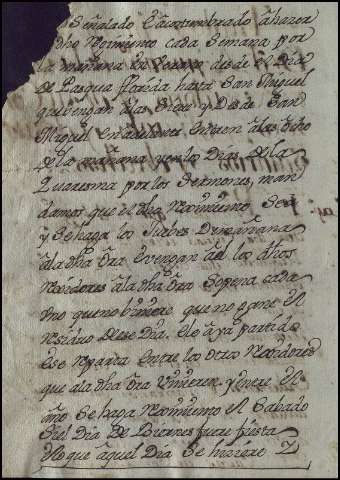 Señalado Eacostumbrado ahacer
dho Rexim.to cada Semana por
la mañana en verano desde el Dia
de Pasqua florida hasta San Miguel
que vengan alas Siete y desde San
Miguel en adelante entren alas Ocho
de la mañana y en los Dias de la
Quaresma por los Sermones, man
damos que el dho Reximiento Sea
y Sehaga los Jueves De mañana
ala dha Ora Evengan a el los dhos
Rexidores ala dha Ora Sopena cada
Uno que no biniere, que no gane El
Residuo de ese Dia, elo aya partido
Ese reparta entre los otros Rexidores
que ala dha Ora Vinieren, y entre El
año Se haga Reximiento El Sabado
Siel Dia De Biernes fuere fiesta
Ylo que aquel Dia Se hiciere